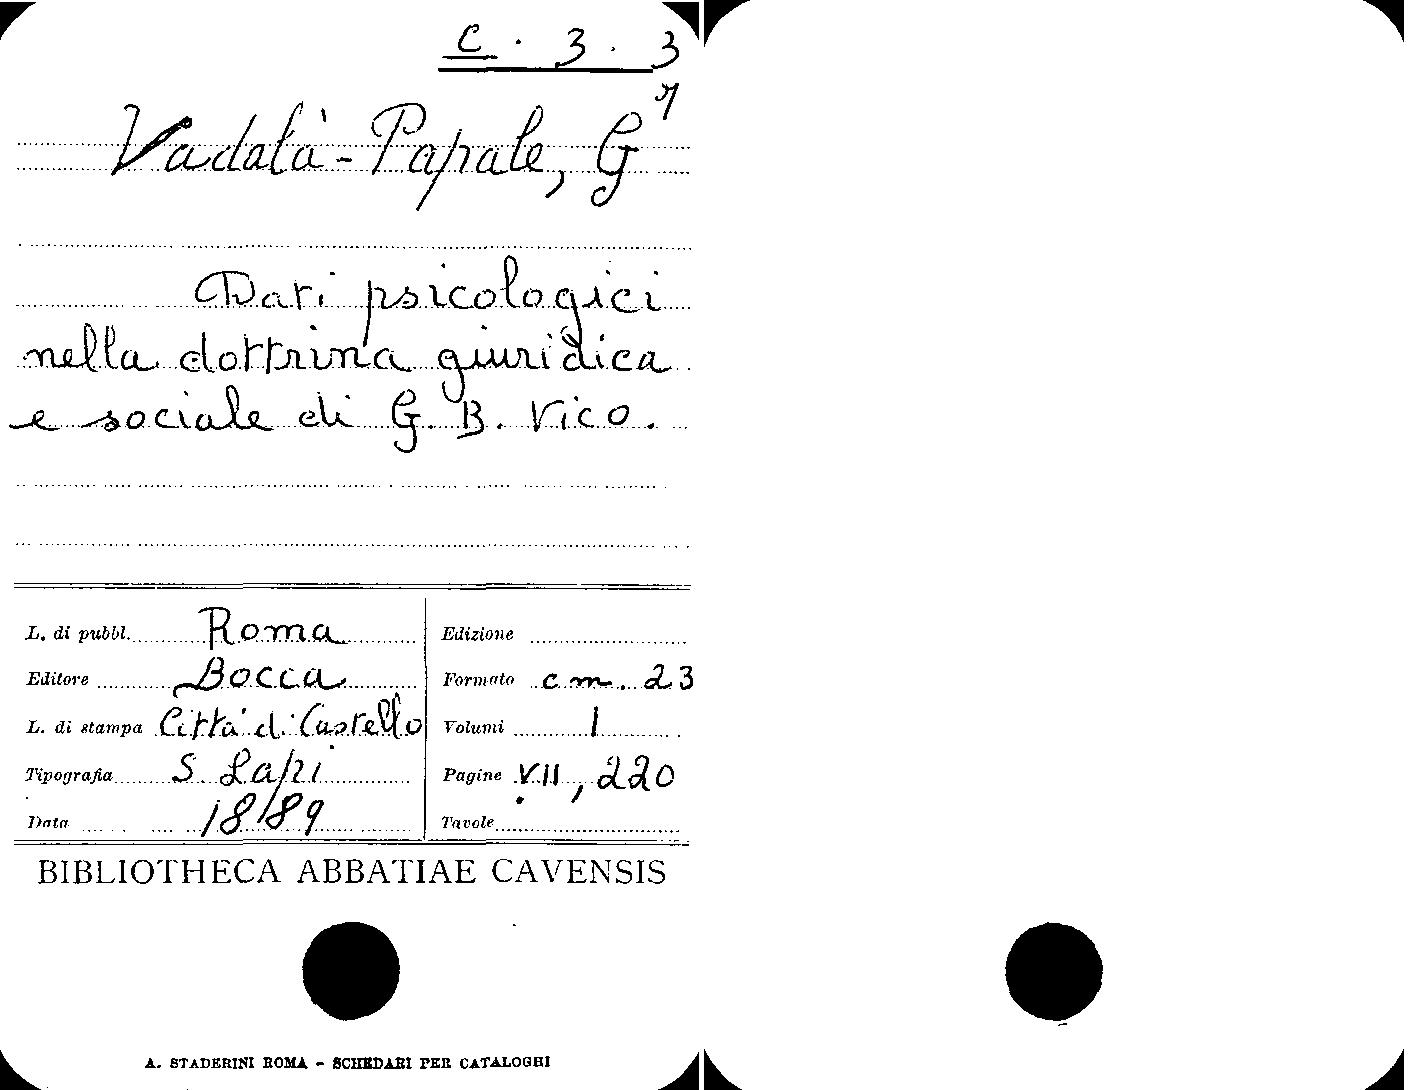 C . 3 . 3
7
Vadalà-Papale, G
Dati psicologici
nella dottrina giuridica
e sociale di G. B. Vico.
L. di pubbl. Roma
Editore Bocca
L. di stampa Città di Castello
Tipografia S. Lapi
Data 1889
Edizione
Formato cm. 23
Volumi 1
Pagine VII, 220
Tavole
BIBLIOTHECA ABBATIAE CAVENSIS
A. STADERINI ROMA - SCHEDARI PER CATALOGHI